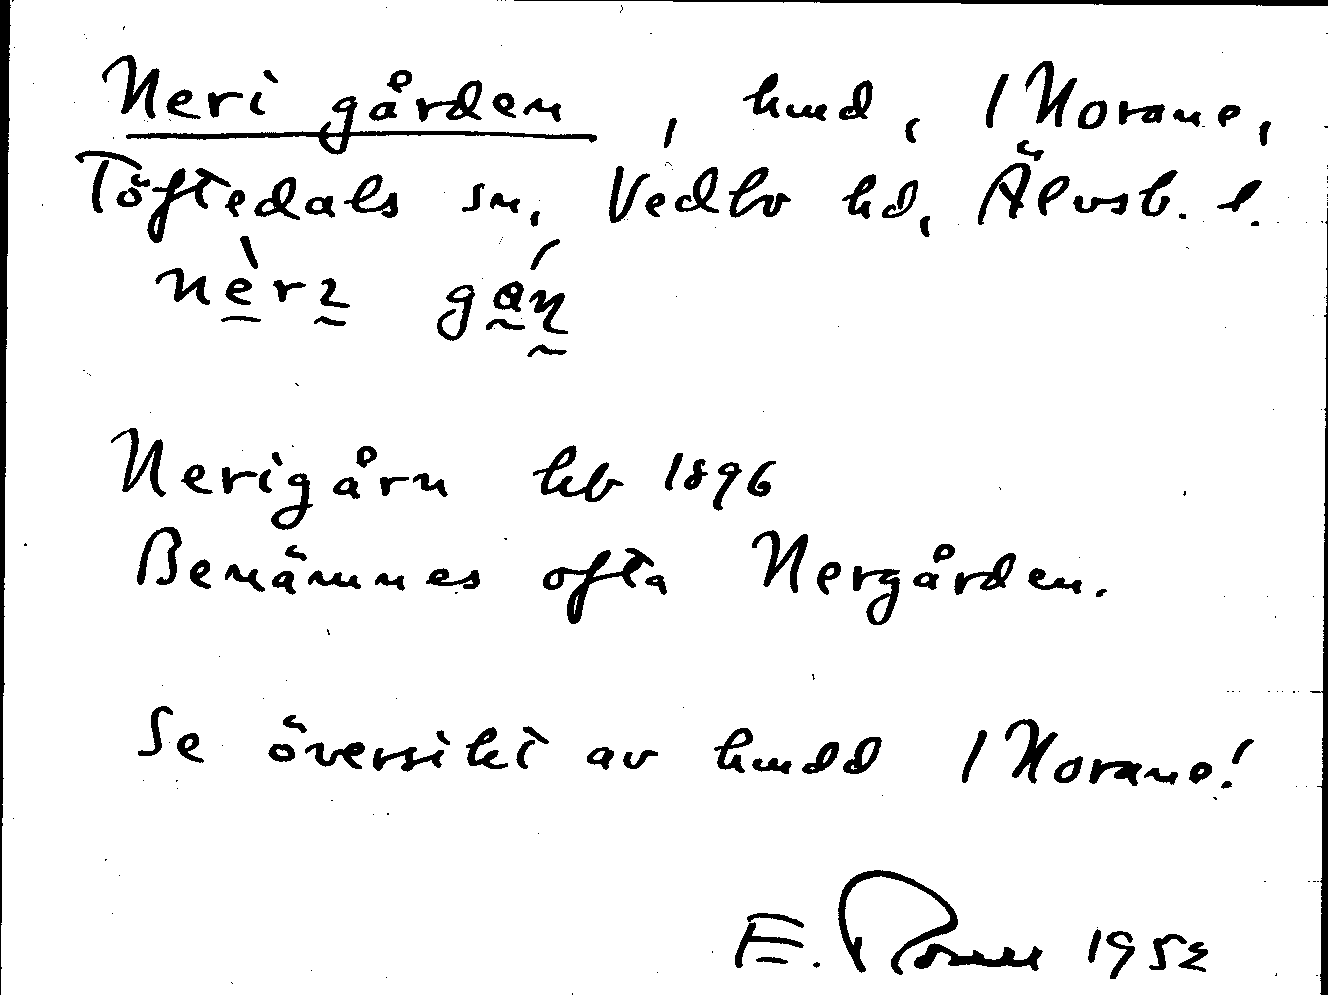 Neri gården, hmd, 1 Norane,
Töftedals sn, Vedbo hd, Älvsb. l.
Nerigårn kb 1896
Benämnes ofta Nergården.
Se översikt av hmdd 1 Norane!
E. 1952